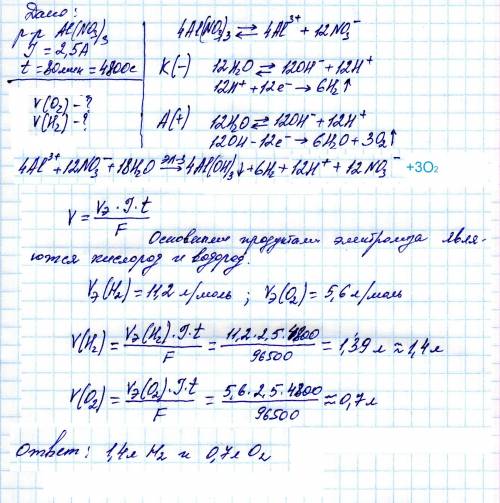 Дано:
р-р Al(NO₃)₃
J = 2,5A
t = 80мин = 4800с
V(O₂) - ?
V(H₂) - ?
4Al(NO₃)₃ ⇄ 4Al³⁺ + 12NO₃⁻
K(-) 12H₂O ⇄ 12OH⁻ + 12H⁺
12H⁺ + 12e⁻ → 6H₂↑
A(+) 12H₂O ⇄ 12OH⁻ + 12H⁺
12OH - 12e⁻ → 6H₂O + 3O₂↑
4Al³⁺ + 12NO₃⁻ + 18H₂O —эл-з→ 4Al(OH)₃↓ + 6H₂ + 12H⁺ + 12NO₃⁻ +3O₂
V = Vэ · J · t / F
Основными продуктами электролиза явля-
ются кислород и водород.
Vэ(H₂) = 11,2 л/моль ; Vэ(O₂) = 5,6 л/моль
V(H₂) = Vэ(H₂) · J · t / F = 11,2 · 2,5 · 4800 / 96500 = 1,39 л ≈ 1,4 л
V(O₂) = Vэ(O₂) · J · t / F = 5,6 · 2,5 · 4800 / 96500 ≈ 0,7 л
Ответ: 1,4 л H₂ и 0,7 л O₂